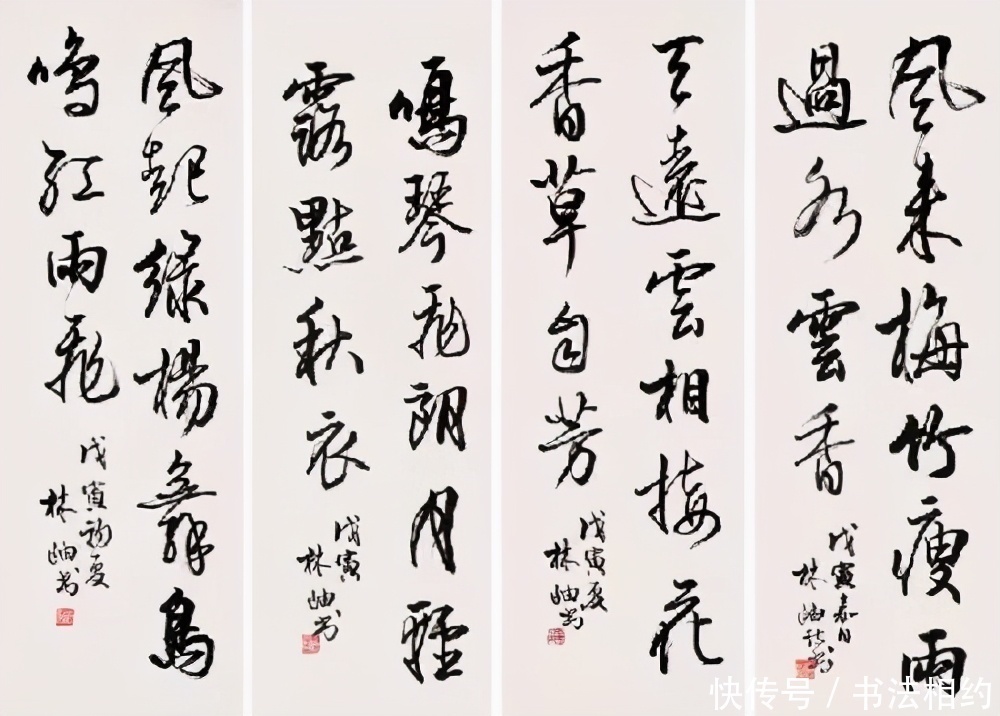 風来梅竹瘦雨
過水雲香
戊寅嘉日
林岫书
天遠雲相接花
香草自芳
戊寅夏
林岫书
鳴琴飛朗月輕
露點秋衣
戊寅
林岫书
風起綠楊舞鳥
鳴紅雨飛
戊寅初夏
林岫书
快传号 / 书法相约